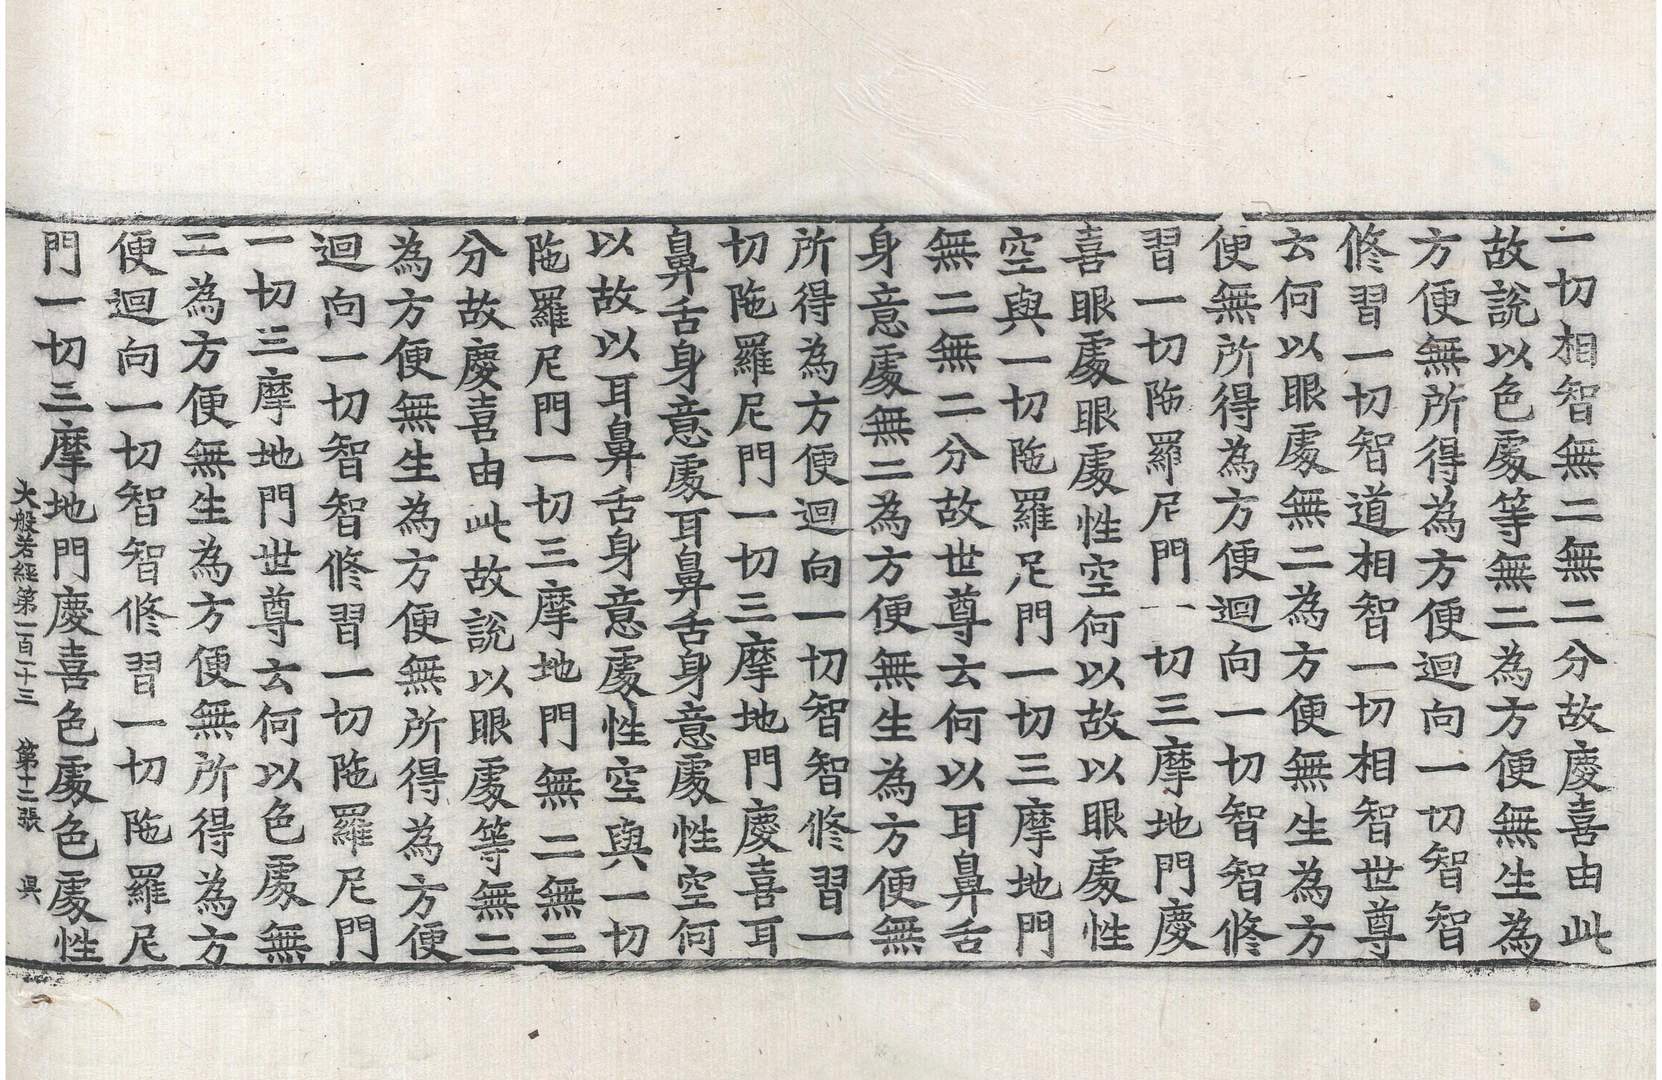 一切相智無二無二分故慶喜由此
故說以色處等無二為方便無生為
方便無所得為方便迴向一切智智
修習一切智道相智一切相智世尊
云何以眼處無二為方便無生為方
便無所得為方便迴向一切智智修
習一切陁羅尼門一切三摩地門慶
喜眼處眼處性空何以故以眼處性
空與一切陁羅尼門一切三摩地門
無二無二分故世尊云何以耳鼻舌
身意處無二為方便無生為方便無
所得為方便迴向一切智智修習一
切陁羅尼門一切三摩地門慶喜耳
鼻舌身意處耳鼻舌身意處性空何
以故以耳鼻舌身意處性空與一切
陁羅尼門一切三摩地門無二無二
分故慶喜由此故說以眼處等無二
為方便無生為方便無所得為方便
迴向一切智智修習一切陁羅尼門
一切三摩地門世尊云何以色處無
二為方便無生為方便無所得為方
便迴向一切智智修習一切陁羅尼
門一切三摩地門慶喜色處色處性
大般若經第一百一十三 第十二張 昃